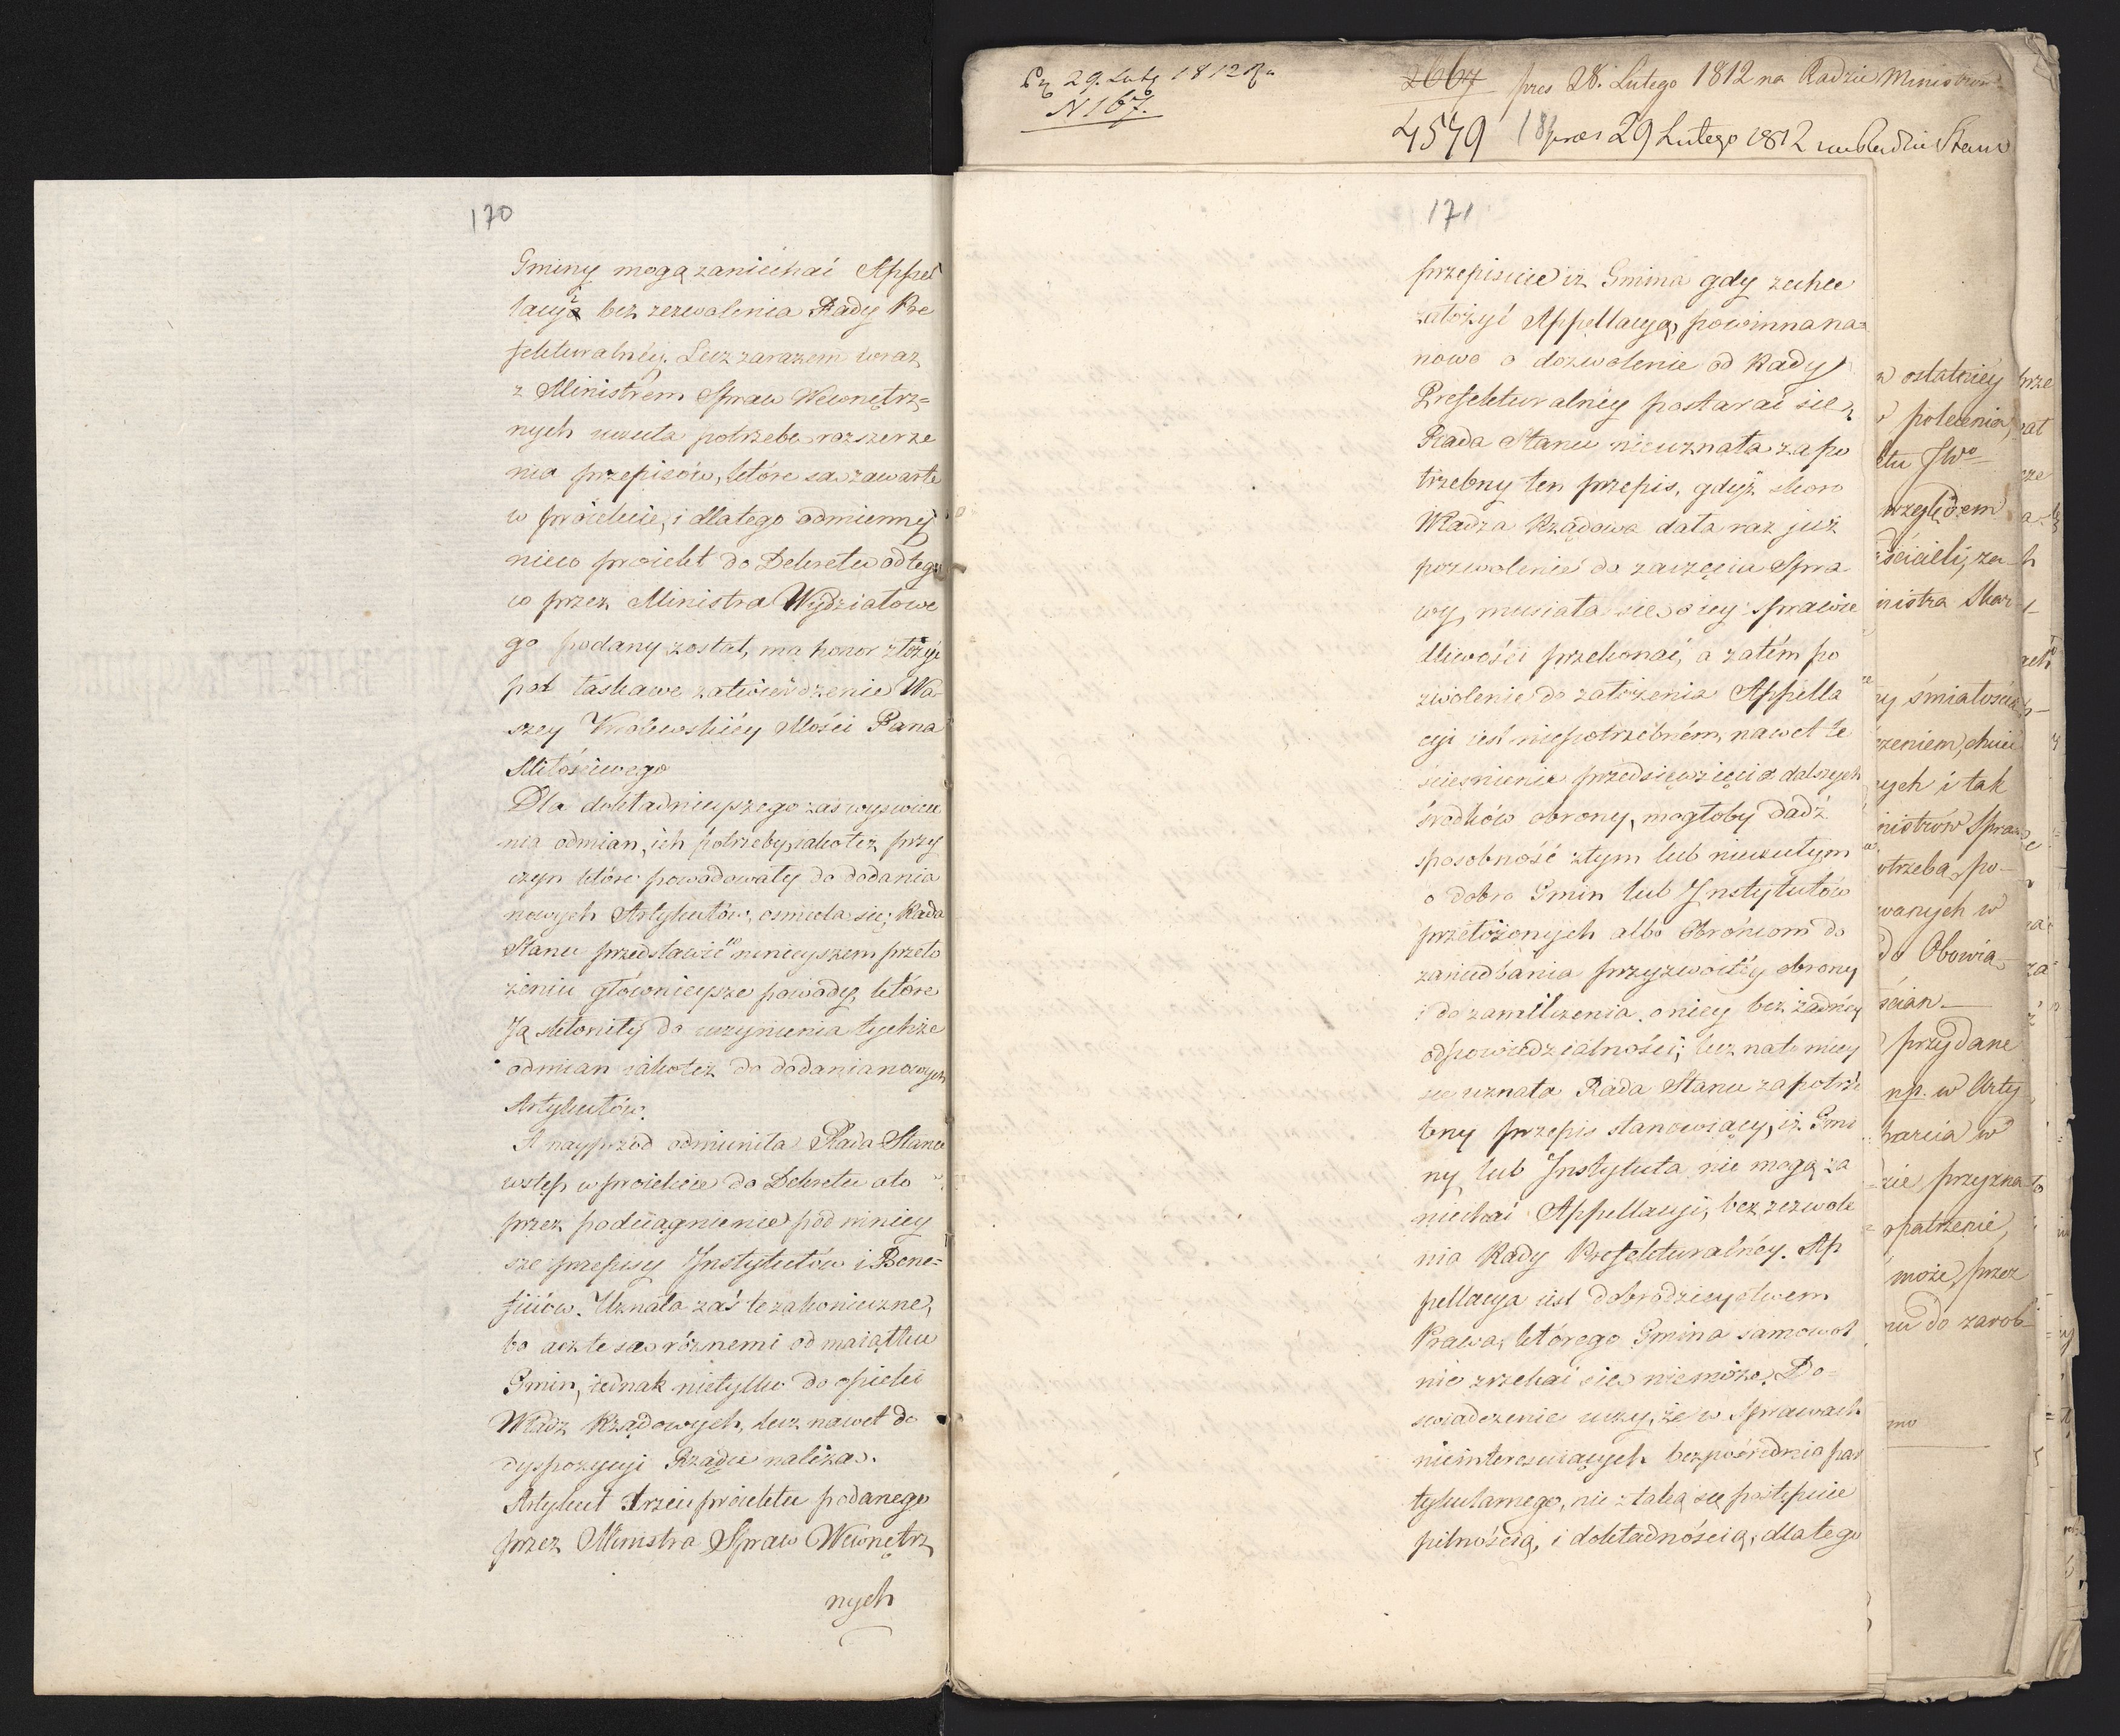 170
Gminy mogą zaniechać Appel
lacyi bez zezwolenia Rady Pre
fekturalnéy. Lecz zarazem wraz
z Ministrem Spraw Wewnętrz=
nych uczuła potrzebę rozszerze
nia przepisów, które są zawarte
w proiekcie, i dlatego odmienny
nieco proiekt do Dekretu od teg
co przez Ministra Wydziałowe
go podany został, ma honor złożyć
pod łaskawe zatwierdzenie Wa
szey Królewskiéy Mości Pana
Miłościwego
Dla dokładnieyszego zaś wyświece
nia odmian, ich potrzeby, iako też przy
czyn które powodowały do dodania
nowych Artykułów, ośmiela się Rada
Stanu przedstawić w ninieyszem przeło
żeniu głównieysze powody, które
Ją skłoniły do uczynienia tychże
odmian iakoteż do dodania nowych
Artykułów.
A nayprzód odmieniła Rada Stanu
wstęp w proiekcie do Dekretu a to
przez podciągnienie pod niniey
sze przepisy Instytutów i Bene=
ficiów. Uznała zaś te za konieczne,
bo acz te są różnemi od maiątku
Gmin, iednak nietylko do opieki
Władz Rządowych, lecz nawet do
dyspozycyi Rządu należą.
Artykuł trzeci proiektu podanego
przez Ministra Spraw Wewnętrz
nych
29. Lutg 1812 R
N 167.
2667 pres 28. Lutego 1812 na Radzie Ministrów
4579 pres 29 Lutego 1812 na Radzie Stanu
171
przepisuie iż Gmina gdy zechce
założyć Appellacyą, powinna na=
nowo o dozwolenie od Rady
Prefekturalnéy postarać się,
Rada Stanu nie uznała za po
trzebny ten przepis, gdyż skoro
Władza Rządowa dała raz już
pozwolenie do zaczęcia Spra
wy, musiała się o iéy sprawie
dliwości przekonać, a zatém po
zwolenie do założenia Appella
cyi iest niepotrzebném, nawet te
ścieśnienie przedsięwzięcia dalszych
środków obrony, mogłoby dadź
sposobność złym lub nieczułym
o dobro Gmin lub Instytutów
przełożonych albo Obrońcom do
zaniedbania przyzwoitéy obrony
i do zamilczenia o niéy bez żadnéy
odpowiedzialności; lecz natomiey
sce uznała Rada Stanu za potrze
bny przepis stanowiący, iż Gmi
ny lub Instytuta nie mogą za
niechać Appellacyi, bez zezwole
nia Rady Prefekturalnéy. Ap
pellacya iest dobrodzieystwem
Prawa, którego Gmina samowol
nie zrzekać się nie może. Do=
świadczenie uczy, że w Sprawach
nieinteresuiących bezpośrednio par
tykularnego, nie z taką się postępuie
pilnością, i dokładnością, dlatego
w ostatniéy
polecenia
ktu JWo
względem
ścicieli, za
nistra Skar
śmiałości
czeniem, chcieć
ych i tak
nistrów Spraw
otrzeba, po-
wanych w
do Obowią
ścian
przydane
np. w Arty
parcia w
zie przyzna
opatrzenie,
może, przez
nu do zarob